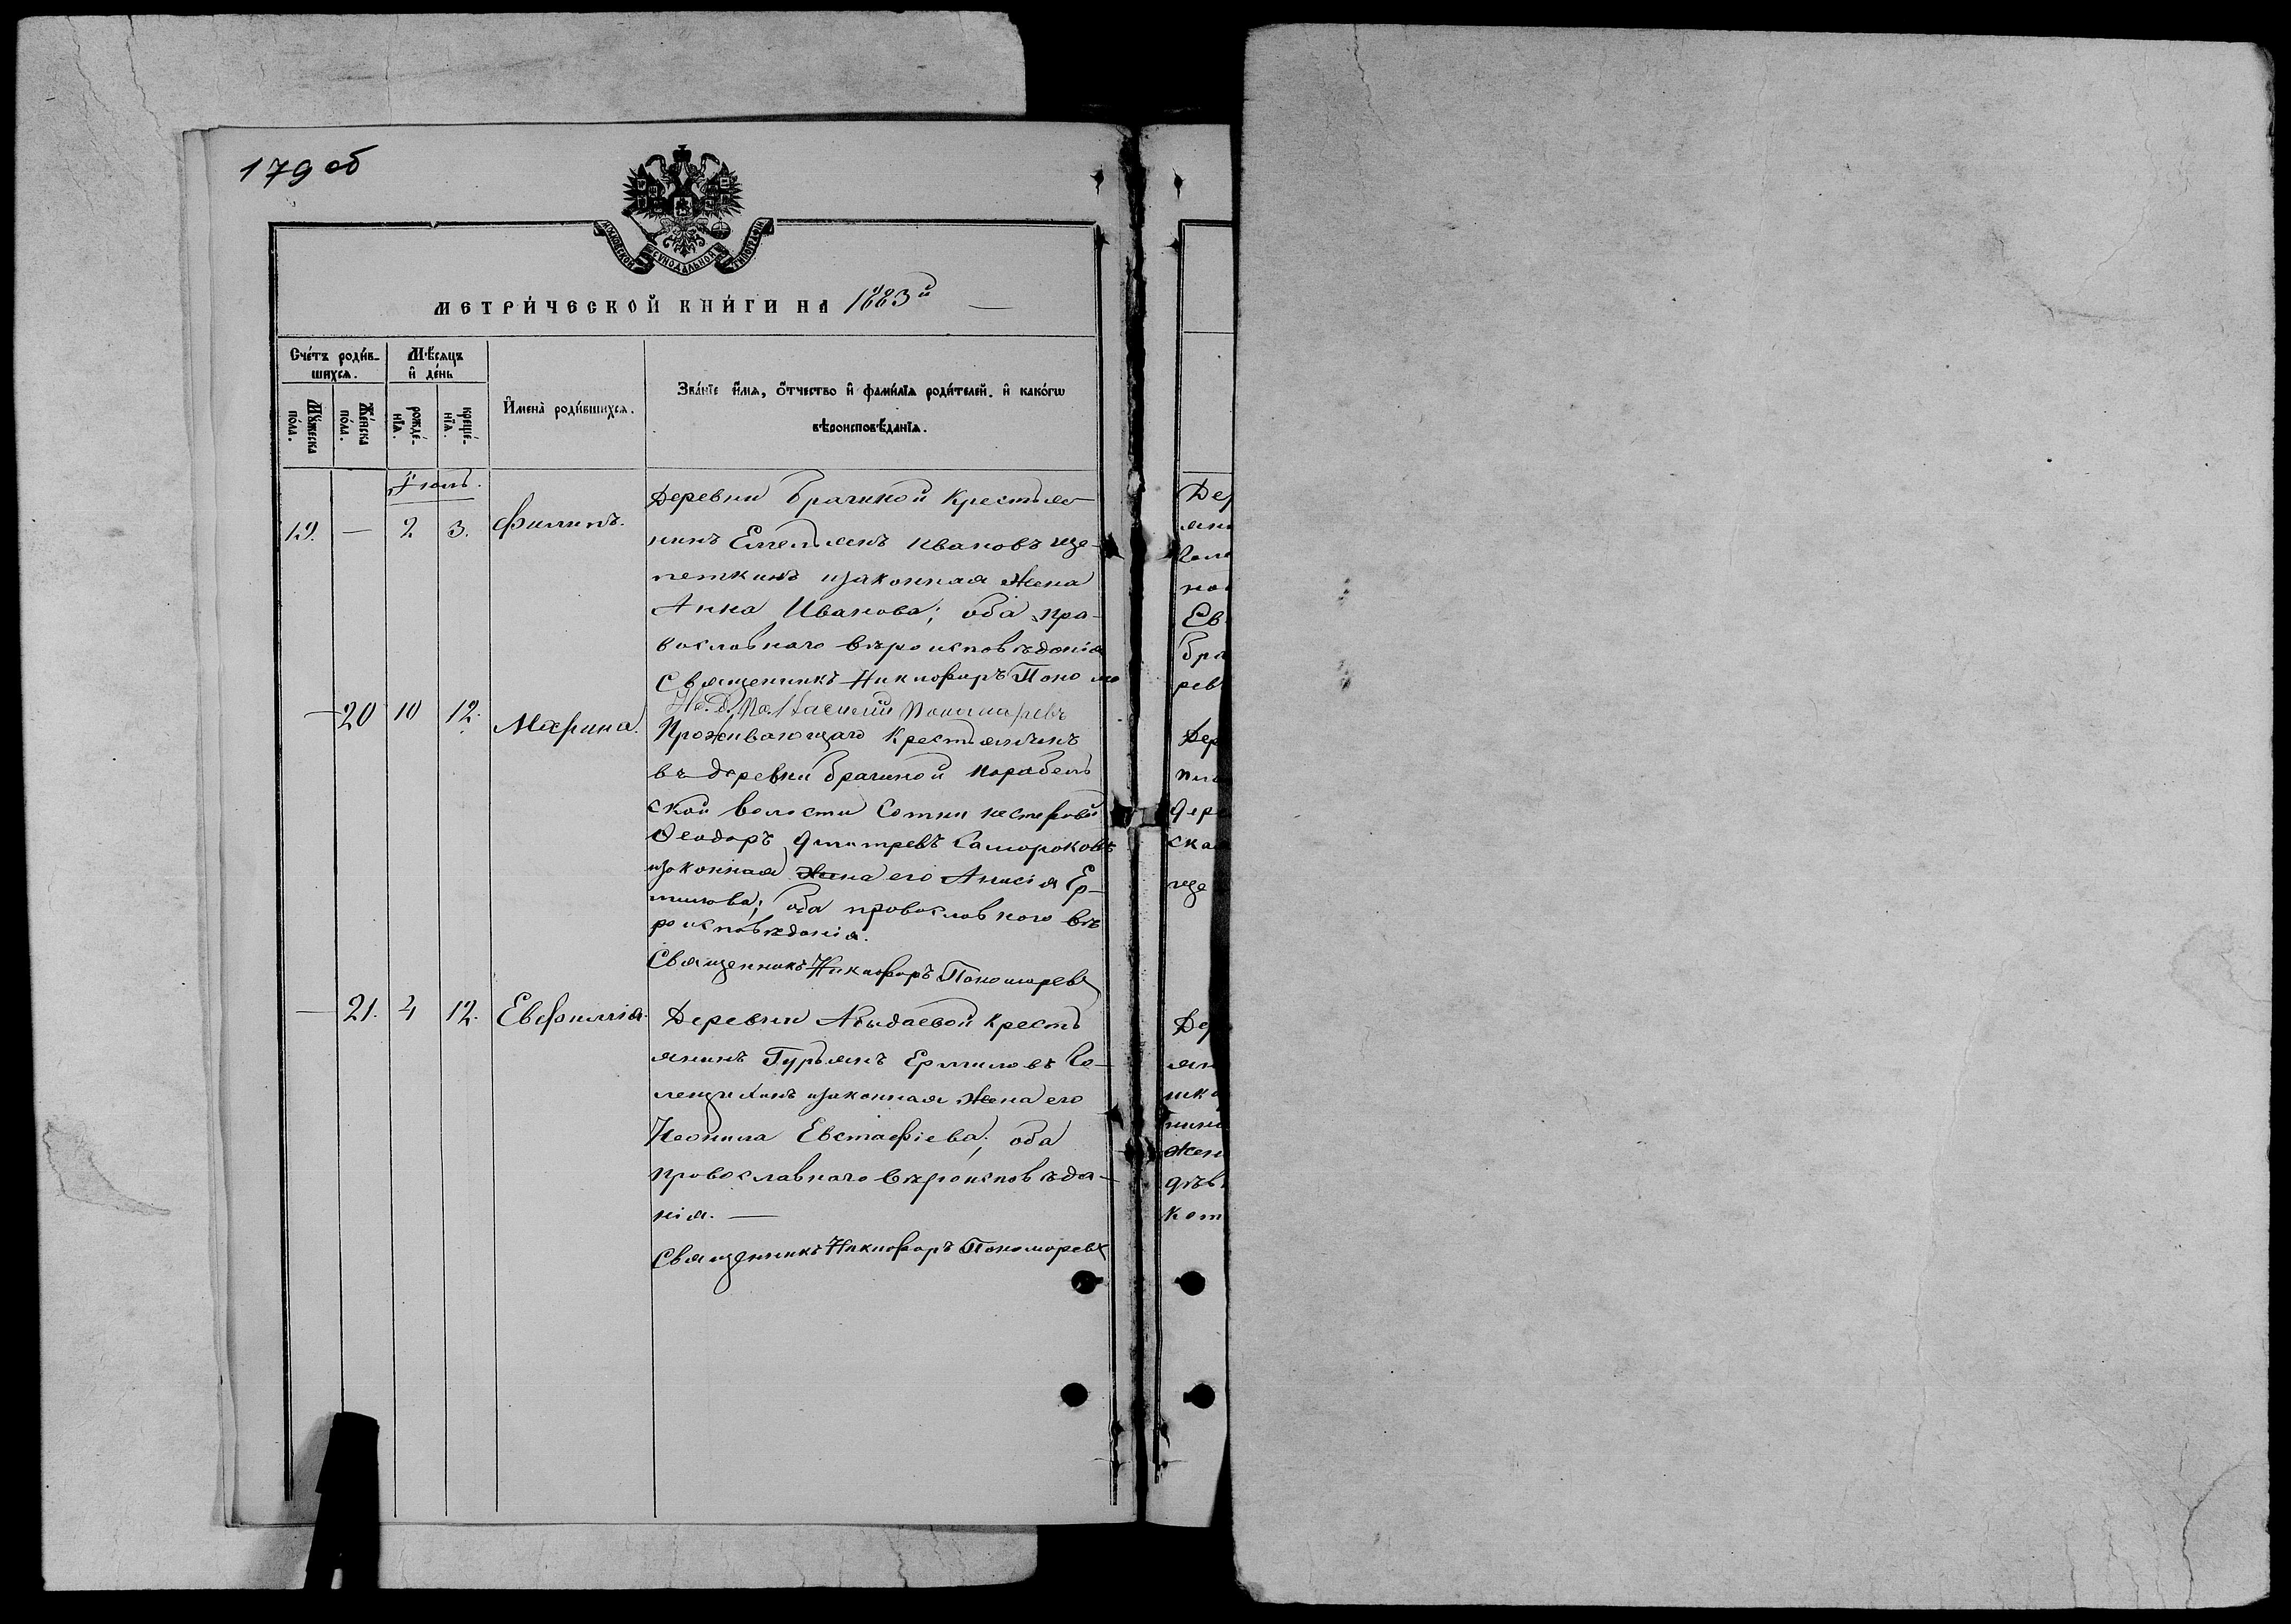 179 об
МОСКОВСКОЙ СѴНОДАЛЬНОЙ ТИПОГРАФІИ
МЕТРИ́ЧЕСКОЙ КНИ́ГИ НА 1883й
Сче́тъ роди́вшихсѧ.
Мѣ́сѧцъ и҆ де́нь
Мꙋ́жеска по́ла.
Же́нска по́ла.
рожде́нїѧ.
креще́нїѧ.
И҆мена̀ роди́вшихсѧ.
Зва́нїе и҆́мѧ, ѻ҆́тчество и҆ фами́лїѧ роди́телей. и҆ како́гѡ
вѣроисповѣ́данїѧ.
Іюль.
19. — 2 3. Филипъ.
Деревни Брагиной Крестья
нинъ Емельянъ Ивановъ Ще-
петкинъ изаконная жена
Анна Иванова; оба пра-
вославнаго вѣроисповѣданія
Священникъ Никифоръ Поно
Василий Пономаревъ
— 20 10 12. Марина.
Проживающаго Крестьянинъ
въ деревни Брагиной Парабель
ской волости Сотни Нестеровой
Ѳеодоръ Дмитревъ Саморoковъ
изаконная жена его Анисія Ер-
милова; оба провославного вѣ
роисповѣданія.
Священникъ Никифоръ Пономоревъ
— 21. 4 12. Евфимія.
Деревни Крестъ
янинъ Гурьянъ Ермиловъ Го-
лещихинъ изаконная жена его
Неонила Евстафіева; оба
провославнаго вѣроисповѣда-
нія. —
Священникъ Никифоръ Пономоревъ
Дер
яни
Голе
нов
Ев
бра
рев
Дер
дере
ска
ще
Де
ян
жен
дѣв
Кот